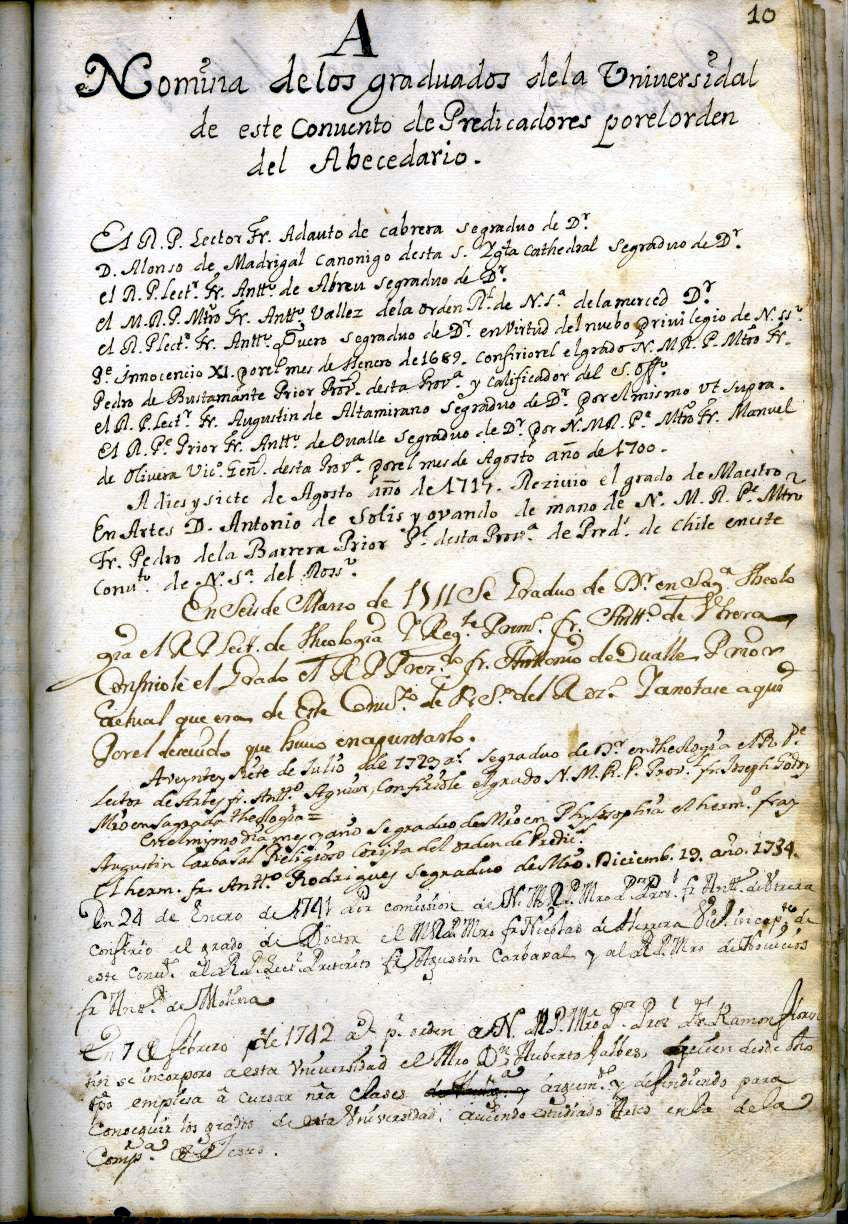 10
A
Nomina delos graduados dela Universidad
de este Convento de Predicadores porelorden
del Abecedario.
El R. P. Lector Fr. Adauto de Cabrera segraduo de Dr
D. Alonso de Madrigal Canonigo desta S. Yglta Cathedral segraduo de Dr.
el R. P. Lectr. Fr. Antto. de Abreu segraduo de Dr.
el M. R. P. Mtro Fr. Antto. Vallez dela orden Rl. de N. Sa. delamerced Dr.
el R. P. Lectr. Fr. Antto. segraduo de Dr. envirtud del nuebo privilegio de N. SSo.
Pe. Innocencio XI. porelmes de Henero de 1689. Confiriorel elgrado N. M. R. P. Mtro Fr.
Pedro de Bustamante Prior desta Prova. y Calificador del S. Offo.
el R. P. Lectr. Fr. Augustin de Altamirano segraduo de Dr. porelmismo vt supra.
El R. Pe. Prior Fr. Antto. de Ovalle segraduo de Dr por N. M. R. Pe. Mtro Fr. Manuel
de Olivera Vico. Genl. desta Prova. porelmes de Agosto año de 1700.
A dies y siete de Agosto año de 1717. Rezivio el grado de Maestro
En Artes D. Antonio de Solis y ovando de mano de No. M. R. Pe. Mtro
Fr. Pedro dela Barrera Prior Pl. desta Prova. de Predr. de Chile eneste
Convto. de N. Sa. del Rosso.
En Seis de Marzo de 1711 Se Graduo de Dr en Saga Theolo
gia el R P Lect. de Theologia Y Regte Prim. fr. Antto. de Vtrera
Confriole el Grado el R P Prez.do fr. Anttonio de Ovalle Prior
actual que era de Este Convto de N. Sa. del Roz. Y anotase aqui
Porel descuido que huvo enapuntarlo.
Aveynte y siete de Julio de 1723 as. segraduo de Dr. entheologia el R. Pe.
Lector de Artes fr. Antto. Aguiar, Confiriole elgrado N. M. R. P. Prov. fr. Joseph Godoy
Mro en sagrada theologia=
En el mymo dia mes y año segraduo de Mro en Phylosophia el herm.o fray
Augustin Carbasal Religioso Corista del orden de Predic.
El herm. fr. Antto. Rodrigues segraduo de Mro. Diciemb. 19. año. 1734.
En 24 de Enero de 1741 por comission de N. M. R. P. Mro Prov. fr Antto. de Vtrera
confirio el grado de Doctor el M R P. Mro fr Nicolas de Herrera in capte de
este Convto. al R. P. Lect. Preterito fr Agustin Carbaxal y al R P. Mro de Novicios
fr Anto. de Molina
En 7 de febrero de 1742 as pr. orden de N. M. P. Mro Prov. fr Ramon
se incorporo a esta Vniversidad el Mro Dn Huberto quien desde
empiesa a cursar nra Clases y defendiendo para
Conseguir los grados de esta Vniversidad; aviendo estudiado en la de la
Compa. de